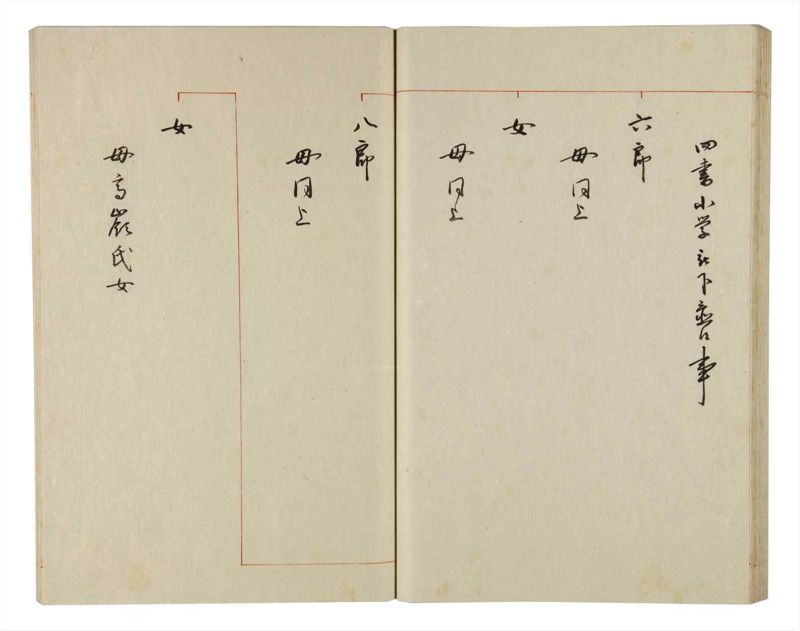 四書小学被下置候事
六郎
母同上
女
母同上
八郎
母同上
女
母高嶺氏女